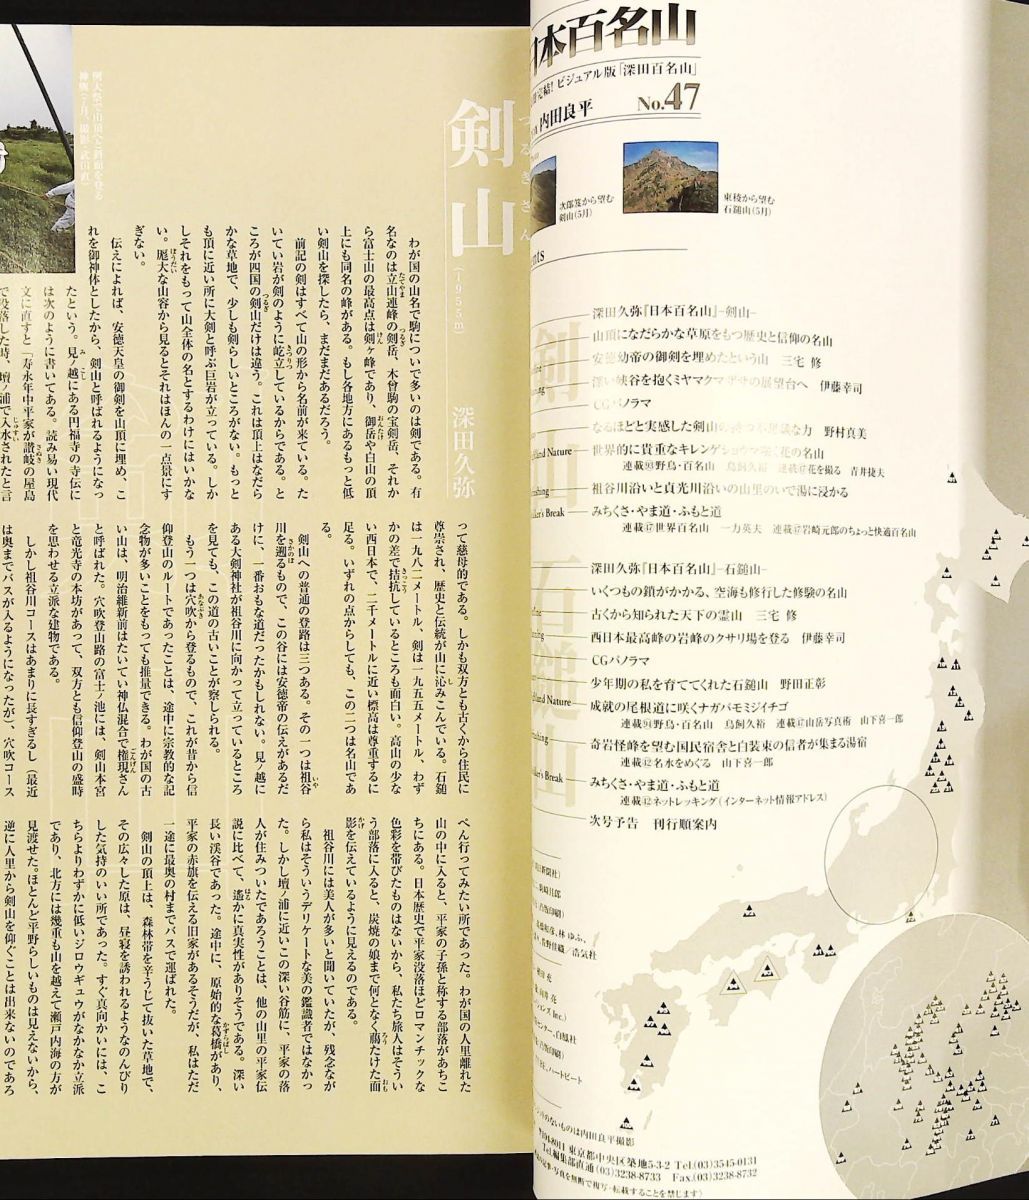 日本百名山
ビジュアル版「深田百名山」
内田良平
No.47
次郎笈から望む
剣山(5月)
東稜から望む
石鎚山(5月)
深田久弥『日本百名山』-剣山-
山頂になだらかな草原をもつ歴史と信仰の名山
安徳幼帝の御剣を埋めたという山　三宅 修
深い峡谷を抱くミヤマクマザサの展望台へ　伊藤幸司
CGパノラマ
なるほどと実感した剣山の持つ不思議な力　野村真美
世界的に貴重なキレンゲショウマ咲く花の名山
連載93野鳥・百名山　鳥飼久裕　連載47花を撮る　青井捷夫
祖谷川沿いと貞光川沿いの山里のいで湯に浸かる
みちくさ・やま道・ふもと道
連載47世界百名山　一力英夫　連載47岩崎元郎のちょっと快適百名山
深田久弥『日本百名山』-石鎚山-
いくつもの鎖がかかる、空海も修行した修験の名山
古くから知られた天下の霊山　三宅 修
西日本最高峰の岩峰のクサリ場を登る　伊藤幸司
CGパノラマ
少年期の私を育ててくれた石鎚山　野田正彰
成就の尾根道に咲くナガバモミジイチゴ
連載94野鳥・百名山　鳥飼久裕　連載47山岳写真術　山下喜一郎
奇岩怪峰を望む国民宿舎と白装束の信者が集まる湯宿
連載32名水をめぐる　山下喜一郎
みちくさ・やま道・ふもと道
連載42ネットレッキング(インターネット情報アドレス)
次号予告　刊行順案内
のないものは内田良平撮影
〒104-8011 東京都中央区築地5-3-2 Tel.(03)3545-0131
Tel.編集部直通(03)3238-8733　Fax.(03)3238-8732
写真を無断で複写・転載することを禁じます)
剣山
つるぎさん
(1955m)
深田久弥
わが国の山名で駒についで多いのは剣である。有
名なのは立山連峰の剣岳、木曾駒の宝剣岳、それか
ら富士山の最高点は剣ヶ峰であり、御岳や白山の頂
上にも同名の峰がある。もし各地方にあるもっと低
い剣山を探したら、まだまだあるだろう。
前記の剣はすべて山の形から名前が来ている。た
いてい岩が剣のように屹立しているからである。と
ころが四国の剣山だけは違う。これは頂上はなだら
かな草地で、少しも剣らしいところがない。もっと
も頂に近い所に大剣と呼ぶ巨岩が立っている。しか
しそれをもって山全体の名とするわけにはいかな
い。厖大な山容から見るとそれはほんの一点景にす
ぎない。
伝えによれば、安徳天皇の御剣を山頂に埋め、こ
れを御神体としたから、剣山と呼ばれるようになっ
たという。見ノ越にある円福寺の寺伝に
は次のように書いてある。読み易い現代
文に直すと「寿永年中平家が讃岐の屋島
で没落した時、壇ノ浦で入水されたと言
って慈母的である。しかも双方とも古くから住民に
尊崇され、歴史と伝統が山に沁みこんでいる。石鎚
は一九八二メートル、剣は一九五五メートル、わず
かの差で拮抗しているところも面白い。高山の少な
い西日本で、二千メートルに近い標高は尊重するに
足る。いずれの点からしても、この二つは名山であ
る。
剣山への普通の登路は三つある。その一つは祖谷
川を遡るもので、この谷には安徳帝の伝えがあるだ
けに、一番おもな道だったかもしれない。見ノ越に
ある大剣神社が祖谷川に向かって立っているところ
を見ても、この道の古いことが察しられる。
もう一つは穴吹から登るもので、これが昔から信
仰登山のルートであったことは、途中に宗教的な記
念物が多いことをもっても推量できる。わが国の古
い山は、明治維新前はたいてい神仏混合で権現さん
と呼ばれた。穴吹登山路の富士ノ池には、剣山本宮
と竜光寺の本坊があって、双方とも信仰登山の盛時
を思わせる立派な建物である。
しかし祖谷川コースはあまりに長すぎるし（最近
は奥までバスが入るようになったが）、穴吹コース
べん行ってみたい所であった。わが国の人里離れた
山の中に入ると、平家の子孫と称する部落があちこ
ちにある。日本歴史で平家没落ほどロマンチックな
色彩を帯びたものはないから、私たち旅人はそうい
う部落に入ると、炭焼の娘まで何となく﨟たけた面
影を伝えているように見えるのである。
祖谷川には美人が多いと聞いていたが、残念なが
ら私はそういうデリケートな美の鑑識者ではなかっ
た。しかし壇ノ浦に近いこの深い谷筋に、平家の落
人が住みついたであろうことは、他の山里の平家伝
説に比べて、遙かに真実性がありそうである。深い
長い渓谷であった。途中に、原始的な葛橋があり、
平家の赤旗を伝える旧家があるそうだが、私はただ
一途に最奥の村までバスで運ばれた。
剣山の頂上は、森林帯を辛うじて抜いた草地で、
その広々した原は、昼寝を誘われるようなのんびり
した気持のいい所であった。すぐ真向かいには、こ
ちらよりわずかに低いジロウギュウがなかなか立派
であり、北方には幾重も山を越えて瀬戸内海の方が
見渡せた。ほとんど平野らしいものは見えないから、
逆に人里から剣山を仰ぐことは出来ないのであろ